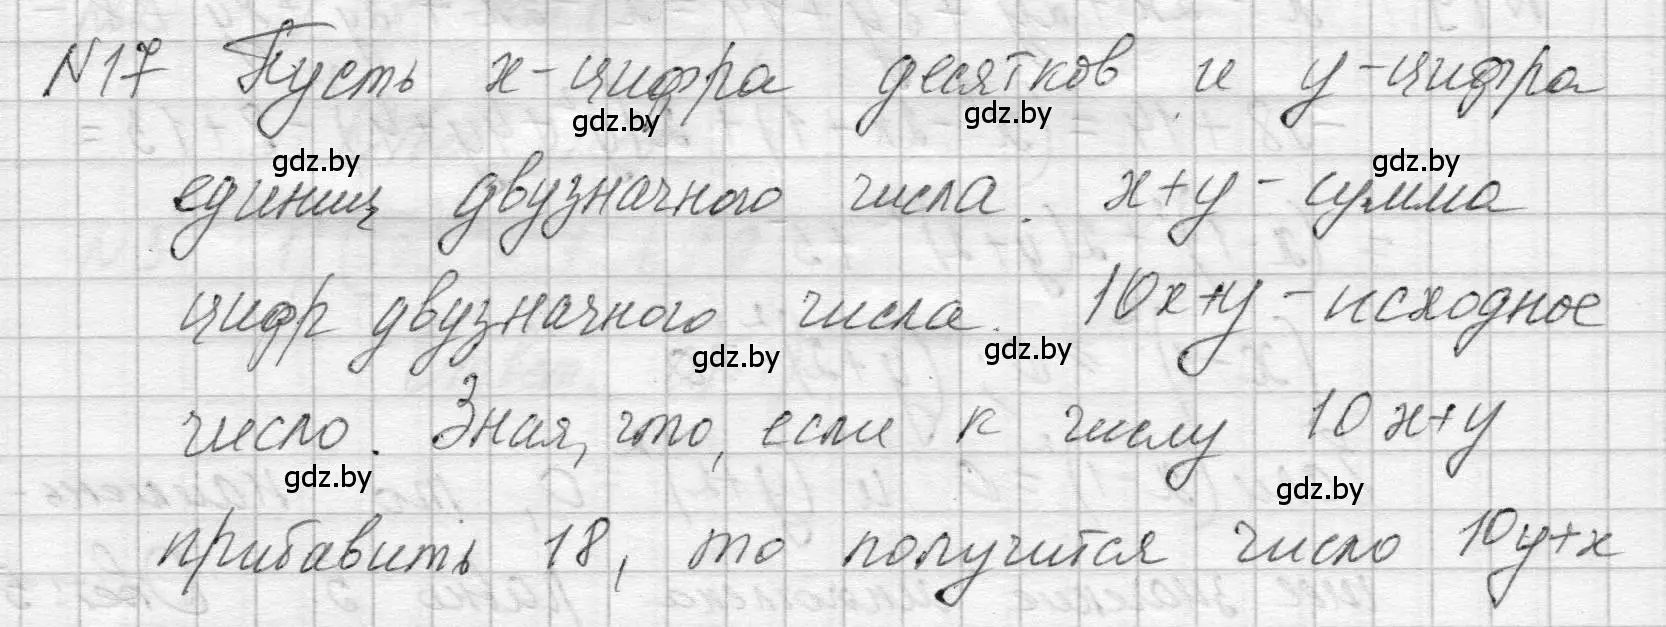 N17 Пусть x-цифра десятков и y-цифра
gdz.by gdz.by
gdz.by gdz.by
единиц двузначного числа. x+y-сумма
цифр двузначного числа. 10x+y-исходное
gdz.by gdz.by
число. Зная, что, если к числу 10x+y
gdz.by gdz.by
прибавить 18, то получится число 10y+x